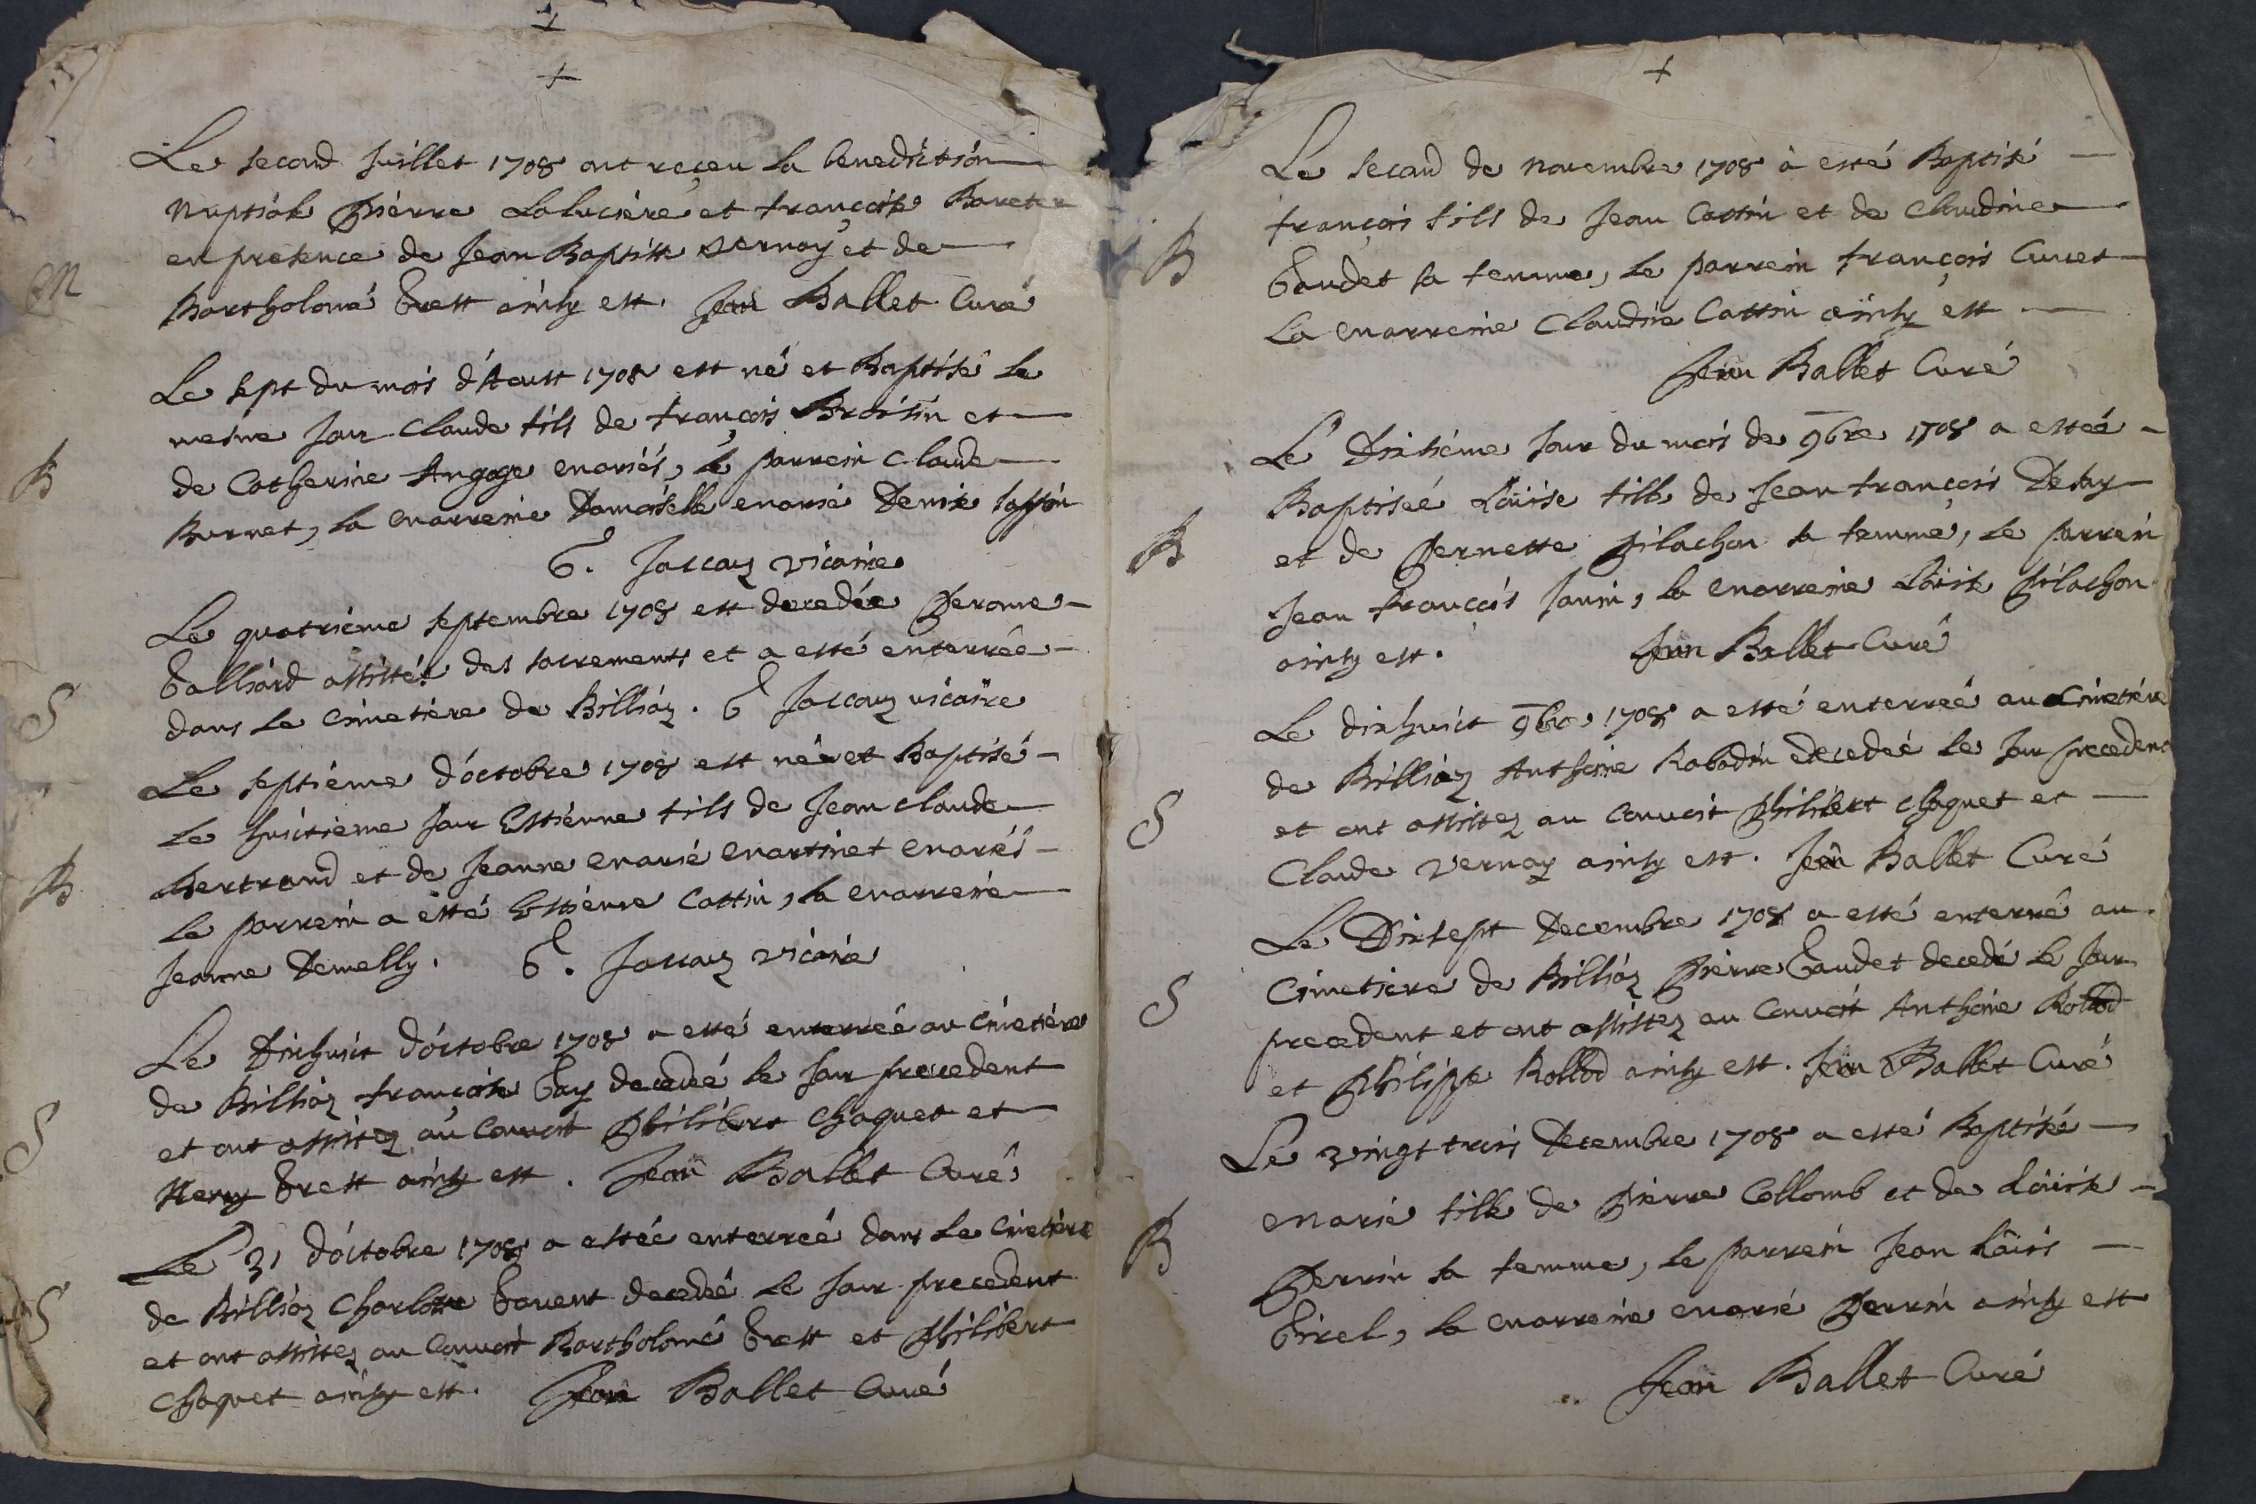 +
Le second Juillet 1708 ont reçeu la benediction
nuptiale Pierre Lalucière et françoise
en presence de Jean Baptiste vernay et de
M
Bartholomé Grett ainsy est. Jean Ballet Curé
Le sept du mois d'Aoust 1708 est né et Baptisé le
mesme Jour Claude fils de françois Broisin et
B
de Catherine Angoge mariés, le parrein Claude
Burnet, la marreine Damoiselle marie Denise
G. Jaccaz vicaire
Le quatrieme septembre 1708 est decedée Perome
Galliard assistée des sacrements et a esté enterrée
S
dans le Cimetiére de Billiaz. G Jaccaz vicaire
Le septiéme d'octobre 1708 est né et Baptisé
le huictieme Jour Estienne fils de Jean claude
B
Bertrand et de Jeanne marie martinet mariés
le parrein a esté Estienne Cattin, la marreine
Jeanne Demelly. G. Jaccaz vicaire
Le Dixhuit d'octobre 1708 a esté enterrée au cimetiére
de Billiaz françoise Gay decedée le Jour precedent
S
et ont assistez au Convoit Philibert Choquet et
Henry Grett ainsy est. Jean Ballet Curé
Le 31 d'octobre 1708 a estée enterreé dans le cimetiére
de Billiaz Charlotte Gavent decedée le Jour precedent
S
et ont assistez au Convoit Bartholomé Grett et Philibert
Choquet ainsy est. Jean Ballet Curé
+
Le second de novembre 1708 à esté Baptisé
françois fils de Jean Cattin et de claudine
B
Gaudet sa femme, le parrein françois Curet
La marreine Claudie Cattin ainsy est
Jean Ballet Curé
Le Dixiéme Jour du mois de 9bre 1708 a estée
Baptiseé Loüise fille de Jean françois Dehuy
B
et de Pernette Pilachon sa femme, le parrein
Jean françois Janin, la marreine Loüise Pilachon
ainsy est. Jean Ballet Curé
Le dixhuict 9bre 1708 a esté enterreé au Cimetiére
de Billiaz Anthoine Rabadin decedeé le Jour precedent
S
et ont assistez au Convoit Philibert choquet et
Claude Vernay ainsy est. Jean Ballet Curé
Le Dixsept Decembre 1708 a esté enterré au
S
Cimetiere de Billiaz Pierre Gaudet decedé le Jour
precedent et ont assistez au Convoit Anthoine Rollod
et Philippe Rollod ainsy est. Jean Ballet Curé
Le vingt trois Decembre 1708 a esté Baptiséé
marie fille de Pierre Collomb et de Loüise
B
Perrin sa femme, le parrein Jean Loüis
Girel, la marreine marie Perrin ainsy est
Jean Ballet Curé